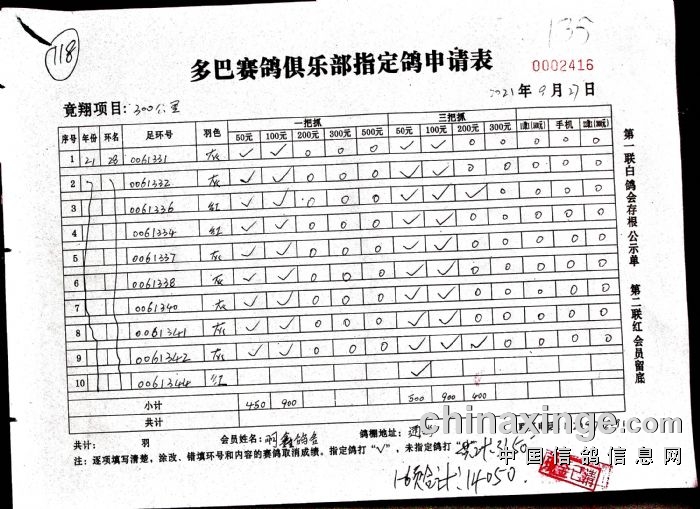 718
135
多巴赛鸽俱乐部指定鸽申请表
0002416
2021年9月27日
竟翔项目：300公里
序号 年份 环名 足环号 羽色 一把抓 三把抓
50元 100元 200元 300元 500元 50元 100元 200元 300元 手机
1 21 28 0061331 灰 ✓ ✓ 0 0 0 ✓ ✓ 0 0 0 0 0
2 0061332 灰 ✓ ✓ 0 0 0 ✓ ✓ 0 0 0 0 0
3 0061336 红 ✓ ✓ 0 0 0 ✓ ✓ ✓ 0 0 0 0
4 0061334 红 ✓ ✓ 0 0 0 ✓ ✓ 0 0 0 0 0
5 0061337 灰 ✓ ✓ 0 0 0 ✓ ✓ 0 0 0 0 0
6 0061338 灰 ✓ ✓ 0 0 0 ✓ ✓ 0 0 0 0 0
7 0061340 灰 ✓ ✓ 0 0 0 ✓ ✓ 0 0 0 0 0
8 0061341 灰 ✓ ✓ 0 0 0 ✓ ✓ 0 0 0 0 0
9 0061342 灰 ✓ ✓ 0 0 0 ✓ ✓ ✓ 0 0 0 0
10 0061344 红 ✓
小计 450 900 500 900 400
共计
共计： 羽 会员姓名： 鸽棚地址：
注：逐项填写清楚，涂改、错填环号和内容的赛鸽取消成绩，指定鸽打“✓”，未指定鸽打
共计3150
1-6页合计：14050
第一联白 鸽会存根 公示单 第二联红 会员留底
chinaxinge.com
中国信鸽信息网